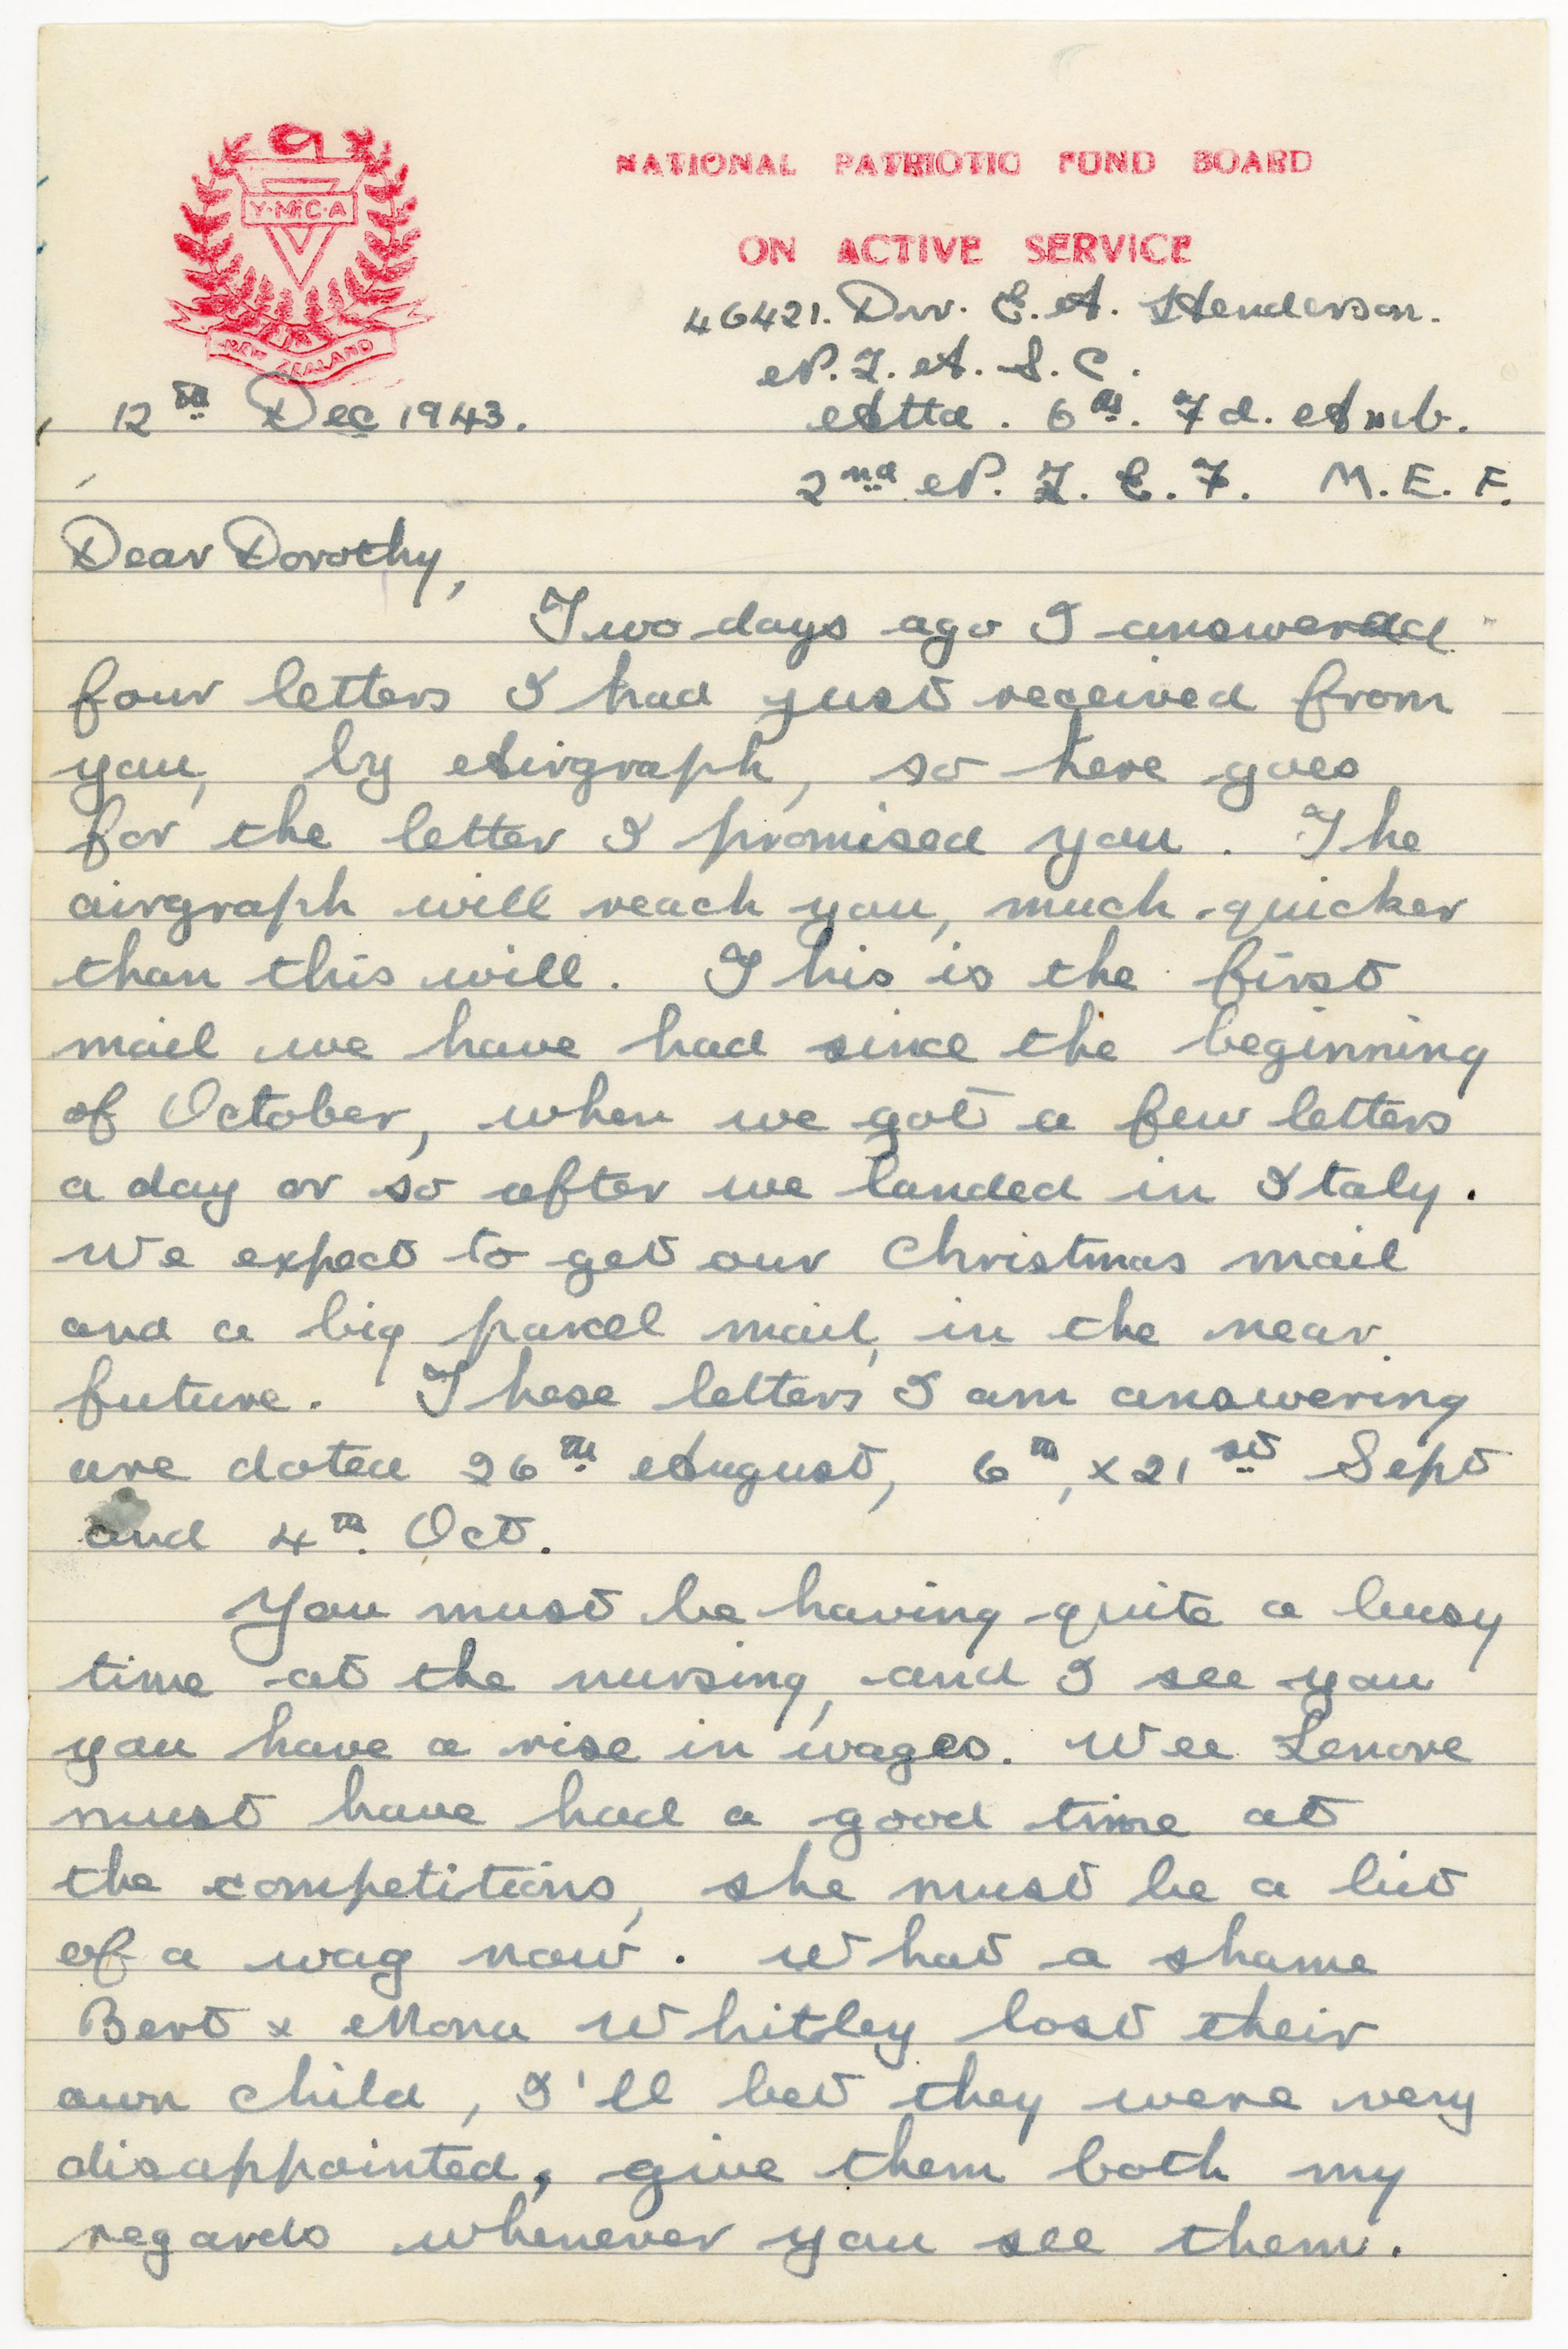 Y·M·C·A
NEW ZEALAND
NATIONAL PATRIOTIC FUND BOARD
ON ACTIVE SERVICE
46421. Dvr. E. A. Henderson.
N. Z. A. S. C.
12th Dec 1943.
Attd. 6th. Fd. Amb.
2nd N. Z. E. F. M. E. F.
Dear Dorothy,
Two days ago I answered
four letters I had just received from
you, by Airgraph, so here goes
for the letter I promised you. The
airgraph will reach you, much quicker
than this will. This is the first
mail we have had since the beginning
of October, when we got a few letters
a day or so after we landed in Italy.
We expect to get our Christmas mail
and a big parcel mail, in the near
future. These letters I am answering
are dated 26th August, 6th, & 21st Sept
and 4th Oct.
You must be having quite a busy
time at the nursing, and I see you
you have a rise in wages. Wee Lenore
must have had a good time at
the competitions, she must be a bit
of a wag now. What a shame
Bert & Mona Whitley lost their
own child, I'll bet they were very
disappointed, give them both my
regards whenever you see them.